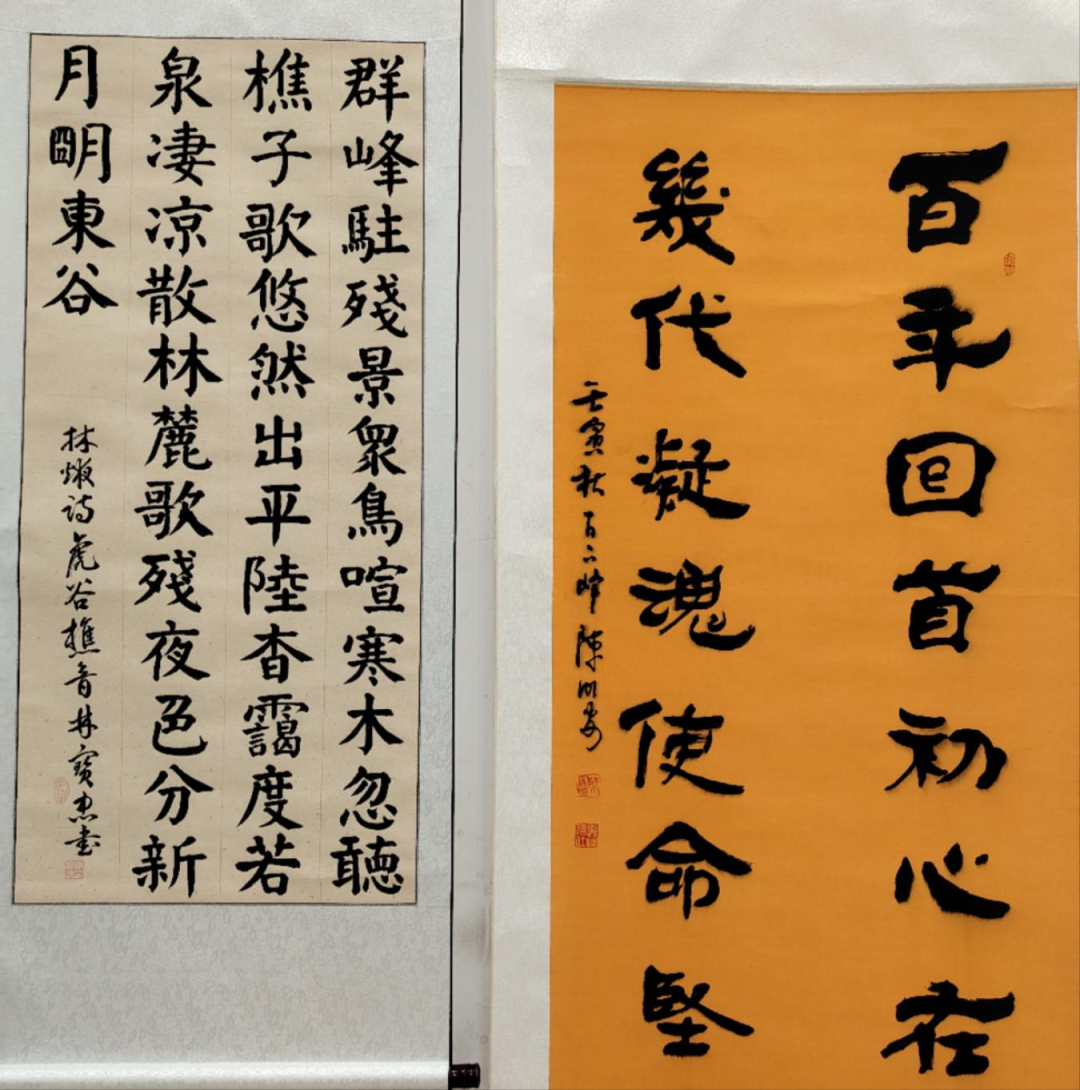 群峰駐殘景衆鳥喧寒木忽聽
樵子歌悠然出平陸杳靄度若
泉凄凉散林麓歌殘夜色分新
月朙東谷
林诗虎谷樵音林寶忠書
百年回首初心在
幾代凝魂使命堅
壬寅秋百六峰陳